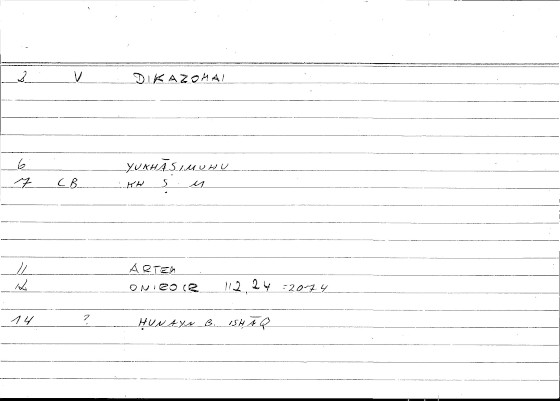 2 V DIKAZOMAI
6 YUKHĀṢIMUHU
7 CB KH Ṣ M
11 ARTEM
12 ONIROCR 112,24 =2074
14 ? ḤUNAYN B. ISḤĀQ